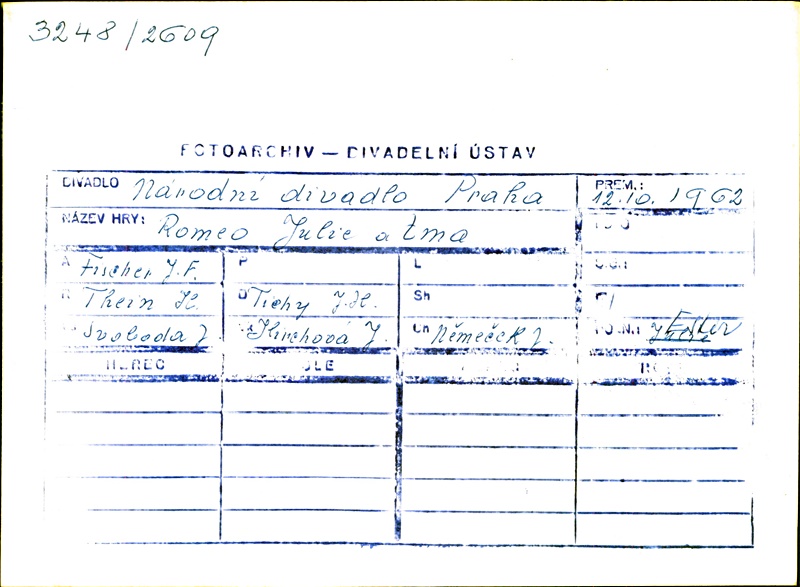 3248/2609
FOTOARCHIV — DIVADELNÍ ÚSTAV
DIVADLO Národní divadlo Praha PREM.: 12.10.1962
NÁZEV HRY: Romeo Julie a tma
A Fischer J.F. P L
R Thein H. D Tichý J.H. Sh
Svoboda J. Jirchová J. Ch Němeček J.
HEREC